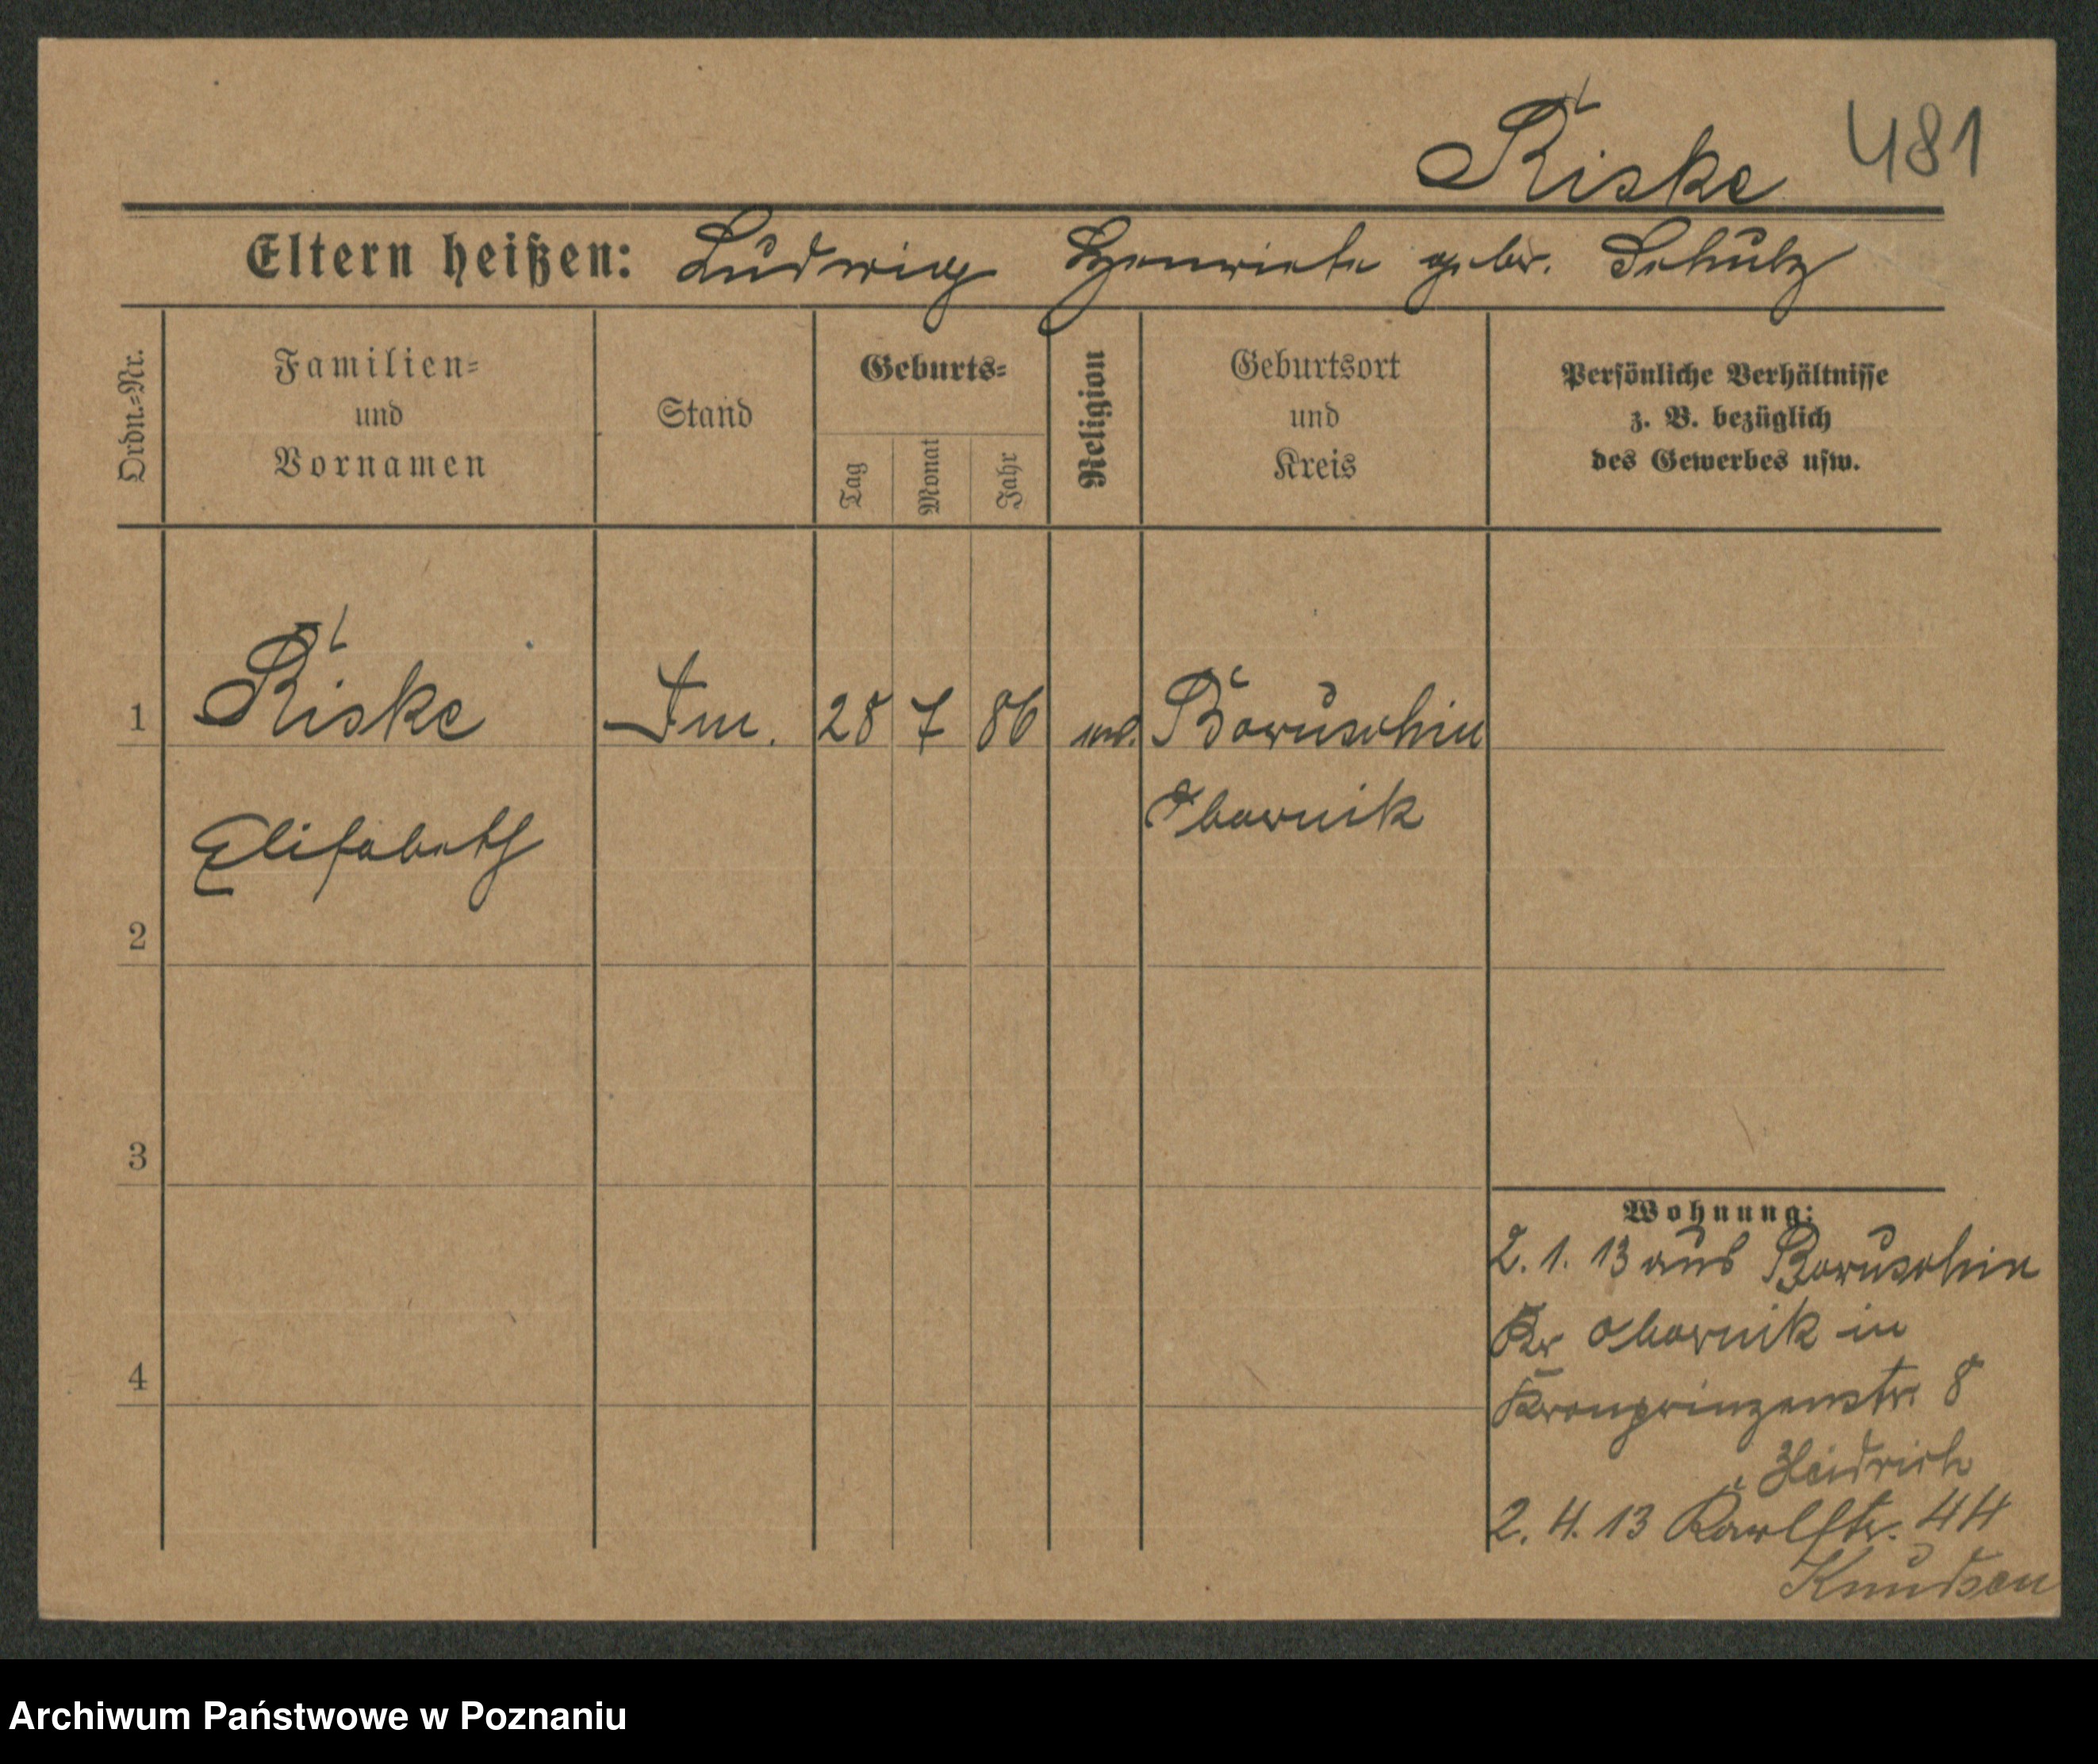 Riske 481
Eltern heißen: Ludwig Henriete gebr. Schulz
Ordn.=Nr.
Familien=
und
Vornamen
Stand
Geburts=
Tag
Monat
Jahr
Religion
Geburtsort
und
Kreis
Persönliche Verhältnisse
z. B. bezüglich
des Gewerbes usw.
1 Riske 28 7 86 Boruschin
Elisabeth Obornik
2
3
4
Wohnung:
2. 1. 13 aus Boruschin
Kr Obornik in
Kronprinzenstr. 8
Heidrich
2. 4. 13 Karlstr. 44
Knudsen
Archiwum Państwowe w Poznaniu